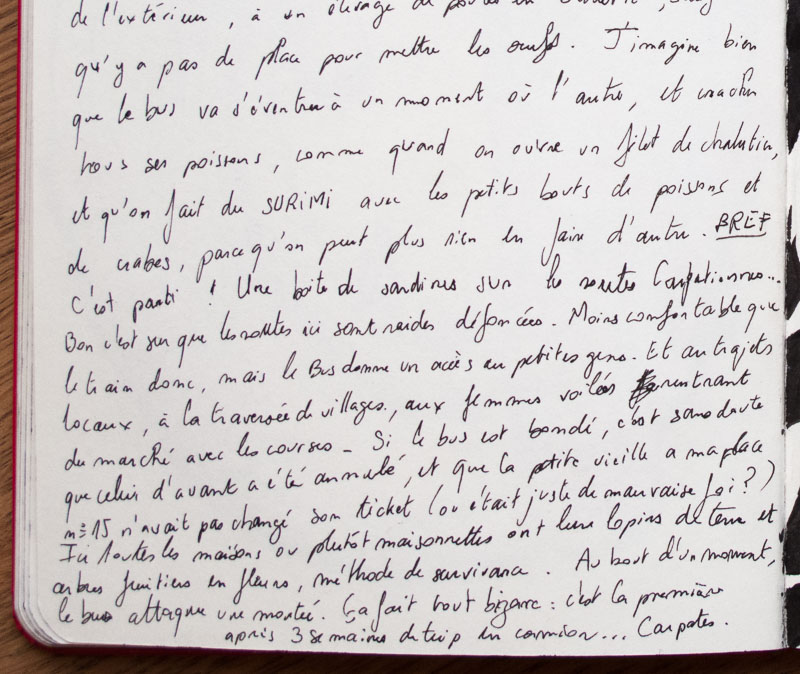 de l'extérieur, à un élevage de poules en
qu'y a pas de place pour mettre les oeufs. J'imagine bien
que le bus va s'éventrer à un moment où l'autre, et cracher
tous ses poissons, comme quand on ouvre un filet de chalutier,
et qu'on fait du SURIMI avec les petits bouts de poissons et
de crabes, parce qu'on peut plus rien en faire d'autre. BREF
C'est parti ! Une boîte de sardines sur les routes Carpatiennes...
Bon c'est sur que les routes ici sont raides défoncées. Moins confortable que
le train donc, mais le Bus donne un accès au petites gens. Et au trajets
locaux, à la traversée de villages, aux femmes voilées rentrant
du marché avec les courses - Si le bus est bondé, c'est sans doute
que celui d'avant a été annulé, et que la petite vieille a ma place
n° 15 n'avait pas changé son ticket (ou c'était juste de mauvaise foi ?)
Ici toutes les maisons ou plutôt maisonnettes ont leur lopins de terre et
arbres fruitiers en fleurs, méthode de survivance. Au bout d'un moment,
le bus attaque une montée. Ça fait tout bizarre : c'est la première
après 3 semaines de trip en camion... Carpates.